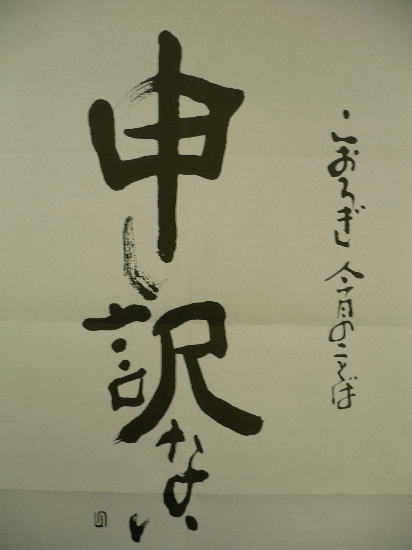 こおろぎ 今月のことば
申し訳ない